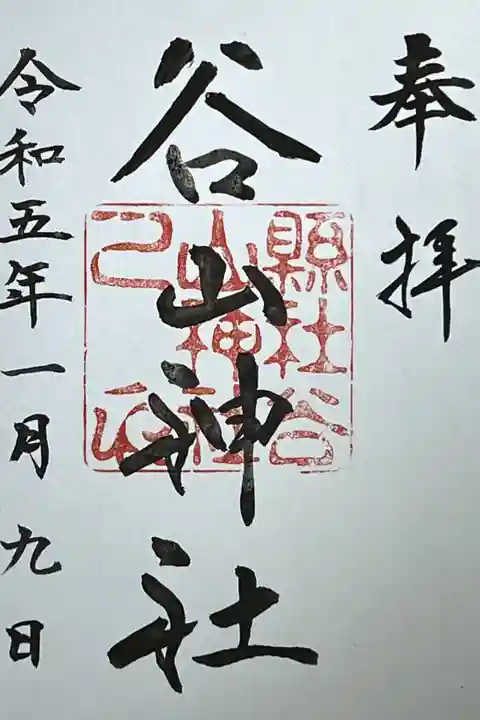 奉拝
谷山神社
縣社谷
山神社
之印
令和五年一月九日